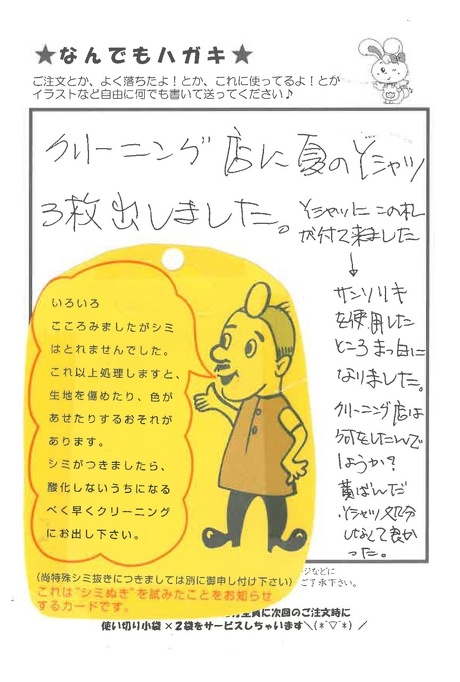 ★なんでもハガキ★
ご注文とか、よく落ちたよ!とか、これに使ってるよ!とか
イラストなど自由に何でも書いて送ってください♪
クリーニング店に夏のYシャツ
3枚出しました。
Yシャツにこの札
が付て来ました
↓
サンソリキ
を使用した
ところまっ白に
なりました。
クリーニング店は
何をしたんで
しょうか?
黄ばんだ
Yシャツ処分
しなくて良か
った。
いろいろ
こころみましたがシミ
はとれませんでした。
これ以上処理しますと、
生地を傷めたり、色が
あせたりするおそれが
あります。
シミがつきましたら、
酸化しないうちになる
べく早くクリーニング
にお出し下さい。
(尚特殊シミ抜きにつきましては別に御申し付け下さい)
これは"シミぬき"を試みたことをお知らせ
するカードです。
ジなどに
ご了承下さい。
全員に次回のご注文時に
使い切り小袋×2袋をサービスしちゃいます＼(*´▽`*)／